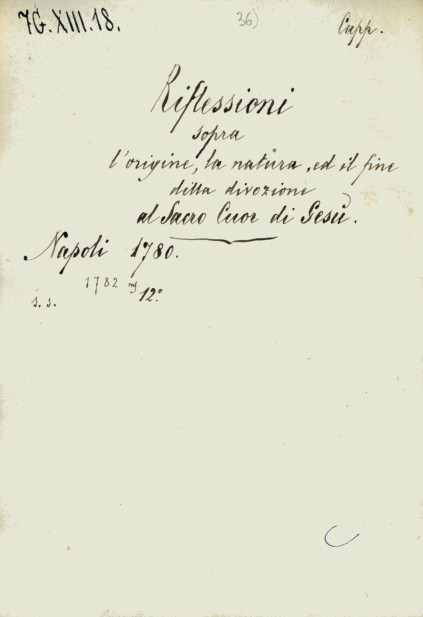 7G.XIII.18. 36) Capp.
Riflessioni
sopra
l'origine, la natura, ed il fine
della divozione
al Sacro Cuor di Gesù.
Napoli 1780.
1782
s. s. 12°